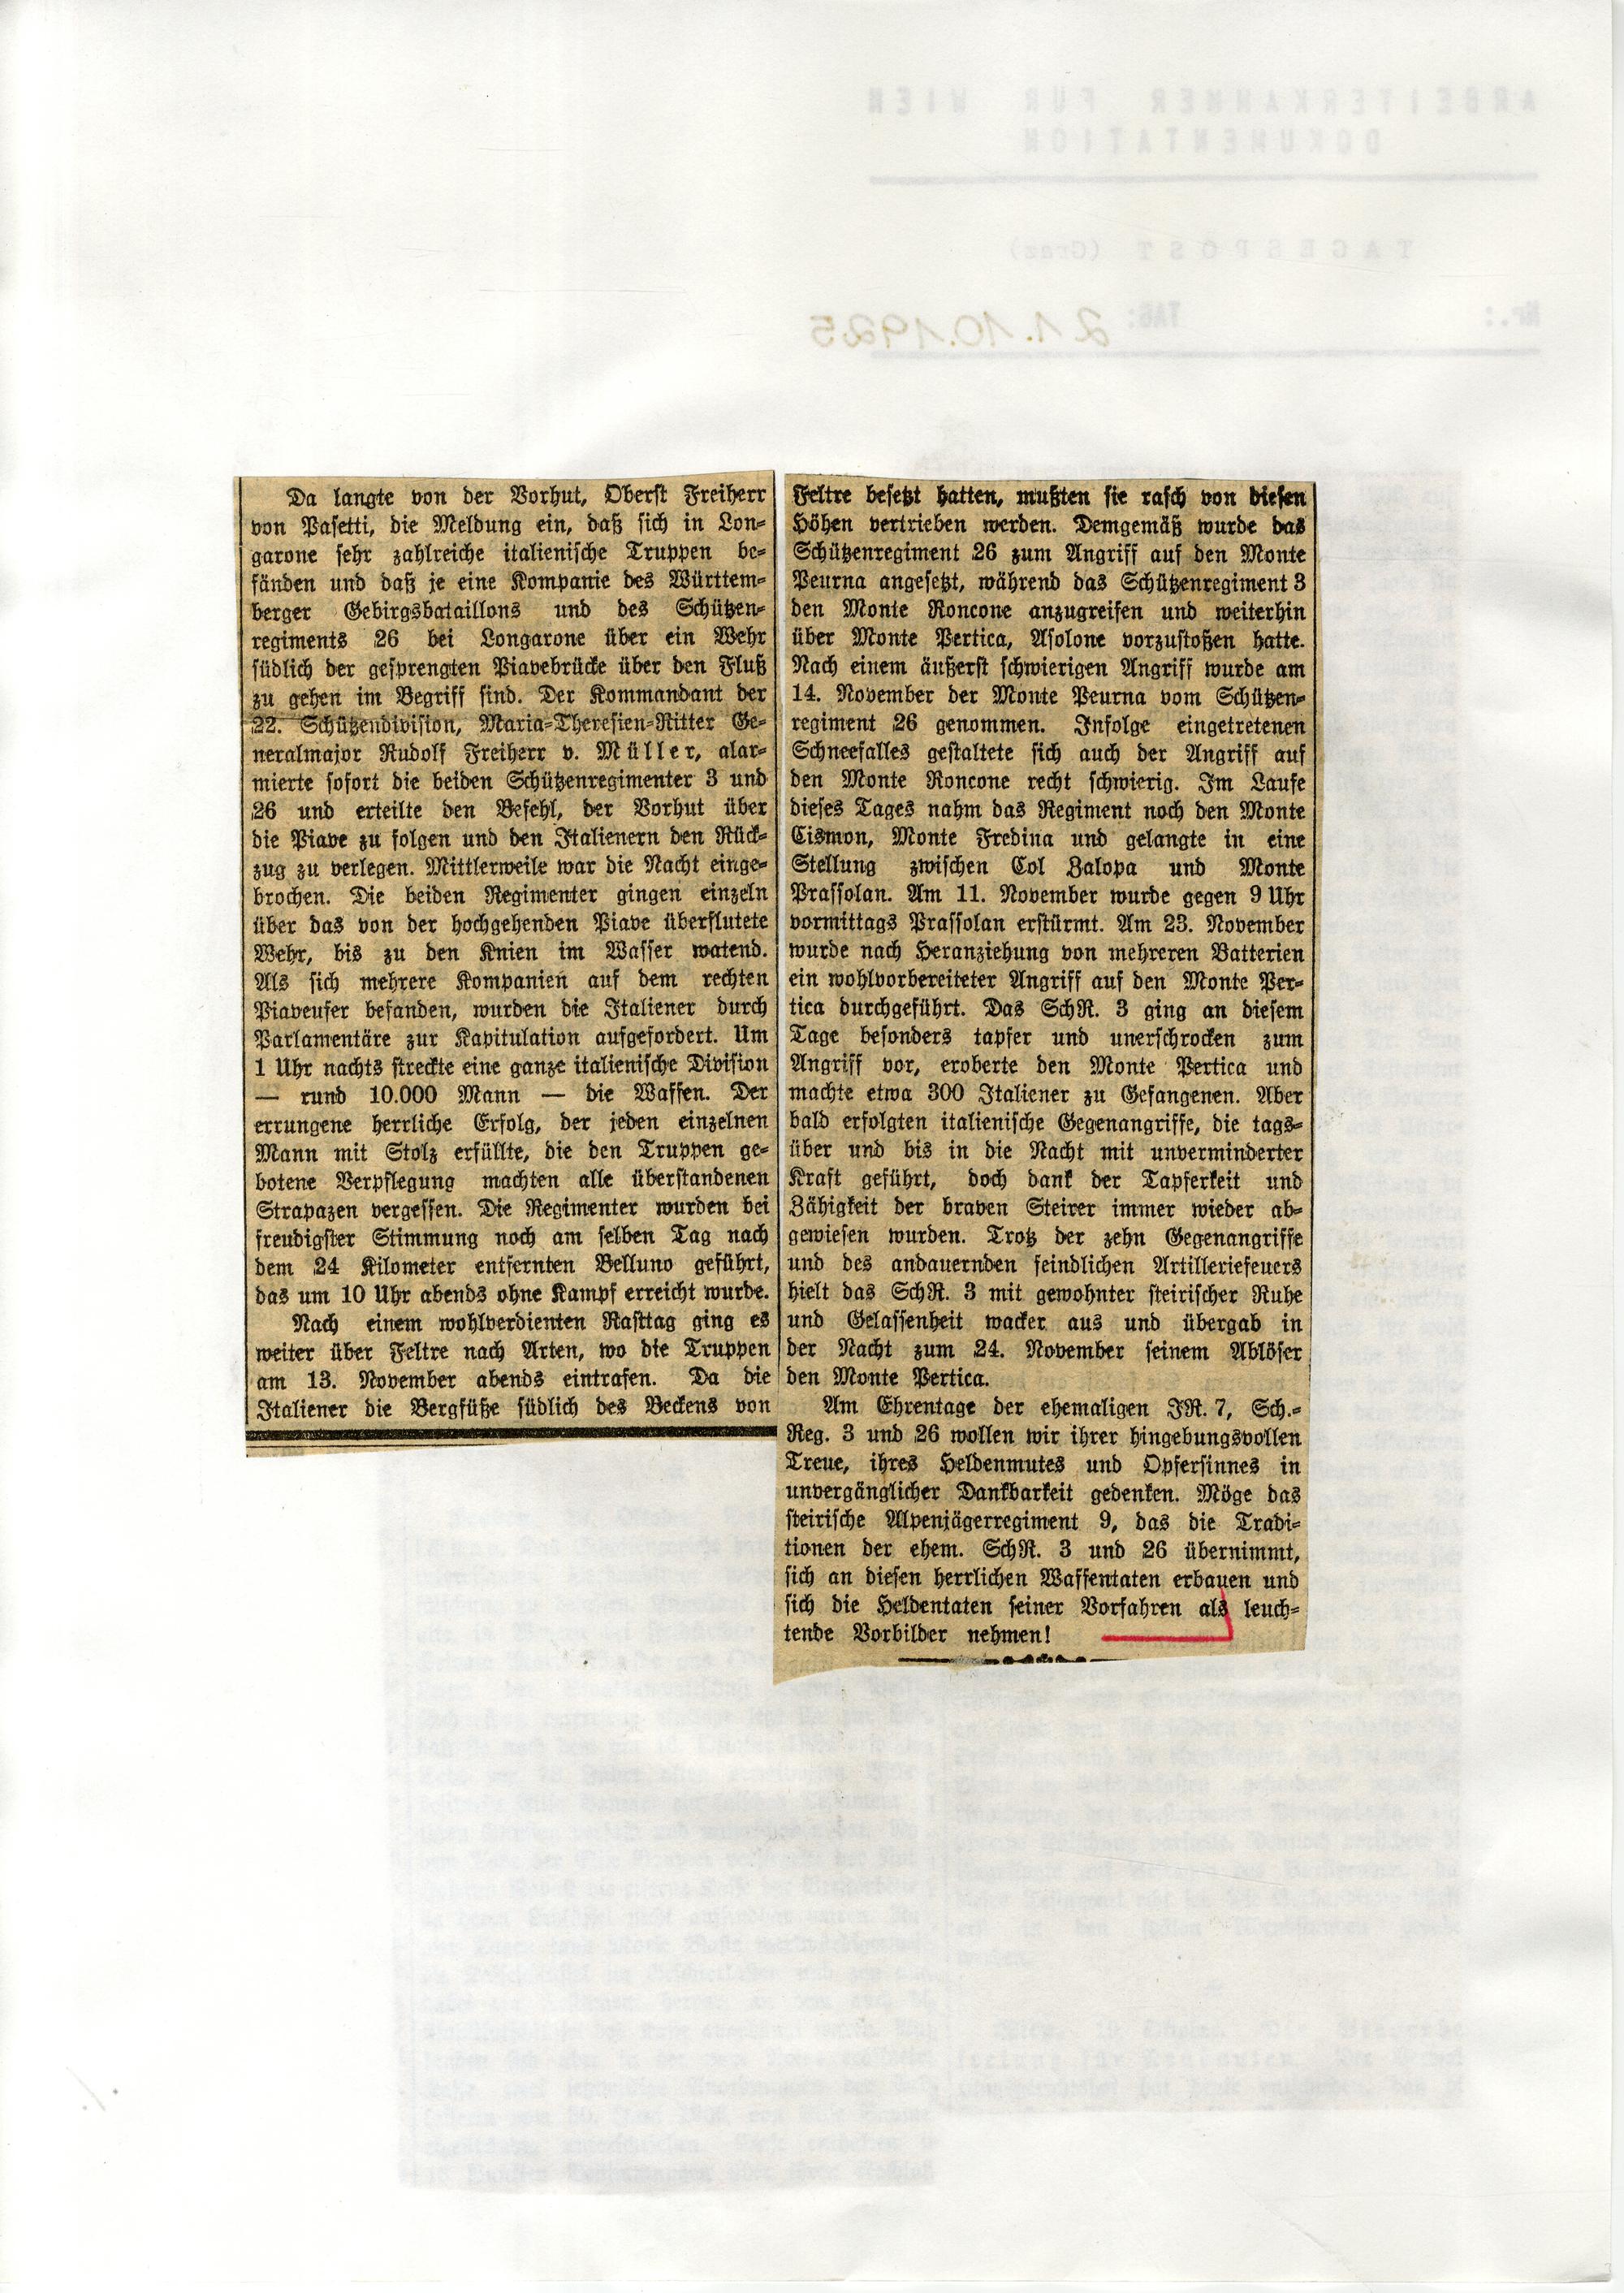 Da langte von der Vorhut, Oberst Freiherr
von Pasetti, die Meldung ein, daß sich in Lon-
garone sehr zahlreiche italienische Truppen be-
fänden und daß je eine Kompanie des Württem-
berger Gebirgsbataillons und des Schützen-
regiments 26 bei Longarone über ein Wehr
südlich der gesprengten Piavebrücke über den Fluß
zu gehen im Begriff sind. Der Kommandant der
22. Schützendivision, Maria-Theresien-Ritter Ge-
neralmajor Rudolf Freiherr v. Müller, alar-
mierte sofort die beiden Schützenregimenter 3 und
26 und erteilte den Befehl, der Vorhut über
die Piave zu folgen und den Italienern den Rück-
zug zu verlegen. Mittlerweile war die Nacht einge-
brochen. Die beiden Regimenter gingen einzeln
über das von der hochgehenden Piave überflutete
Wehr, bis zu den Knien im Wasser watend.
Als sich mehrere Kompanien auf dem rechten
Piaveufer befanden, wurden die Italiener durch
Parlamentäre zur Kapitulation aufgefordert. Um
1 Uhr nachts streckte eine ganze italienische Division
— rund 10.000 Mann — die Waffen. Der
errungene herrliche Erfolg, der jeden einzelnen
Mann mit Stolz erfüllte, die den Truppen ge-
botene Verpflegung machten alle überstandenen
Strapazen vergessen. Die Regimenter wurden bei
freudigster Stimmung noch am selben Tag nach
dem 24 Kilometer entfernten Belluno geführt,
das um 10 Uhr abends ohne Kampf erreicht wurde.
Nach einem wohlverdienten Rasttag ging es
weiter über Feltre nach Arten, wo die Truppen
am 13. November abends eintrafen. Da die
Italiener die Bergfüße südlich des Beckens von
Feltre besetzt hatten, mußten sie rasch von diesen
Höhen vertrieben werden. Demgemäß wurde das
Schützenregiment 26 zum Angriff auf den Monte
Peurna angesetzt, während das Schützenregiment 3
den Monte Roncone anzugreifen und weiterhin
über Monte Pertica, Asolone vorzustoßen hatte.
Nach einem äußerst schwierigen Angriff wurde am
14. November der Monte Peurna vom Schützen-
regiment 26 genommen. Infolge eingetretenen
Schneefalles gestaltete sich auch der Angriff auf
den Monte Roncone recht schwierig. Im Laufe
dieses Tages nahm das Regiment noch den Monte
Cismon, Monte Fredina und gelangte in eine
Stellung zwischen Col Zalopa und Monte
Prassolan. Am 11. November wurde gegen 9 Uhr
vormittags Prassolan erstürmt. Am 23. November
wurde nach Heranziehung von mehreren Batterien
ein wohlvorbereiteter Angriff auf den Monte Per-
tica durchgeführt. Das SchR. 3 ging an diesem
Tage besonders tapfer und unerschrocken zum
Angriff vor, eroberte den Monte Pertica und
machte etwa 300 Italiener zu Gefangenen. Aber
bald erfolgten italienische Gegenangriffe, die tags-
über und bis in die Nacht mit unverminderter
Kraft geführt, doch dank der Tapferkeit und
Zähigkeit der braven Steirer immer wieder ab-
gewiesen wurden. Trotz der zehn Gegenangriffe
und des andauernden feindlichen Artilleriefeuers
hielt das SchR. 3 mit gewohnter steirischer Ruhe
und Gelassenheit wacker aus und übergab in
der Nacht zum 24. November seinem Ablöser
den Monte Pertica.
Am Ehrentage der ehemaligen IR. 7, Sch.-
Reg. 3 und 26 wollen wir ihrer hingebungsvollen
Treue, ihres Heldenmutes und Opfersinnes in
unvergänglicher Dankbarkeit gedenken. Möge das
steirische Alpenjägerregiment 9, das die Tradi-
tionen der ehem. SchR. 3 und 26 übernimmt,
sich an diesen herrlichen Waffentaten erbauen und
sich die Heldentaten seiner Vorfahren als leuch-
tende Vorbilder nehmen!